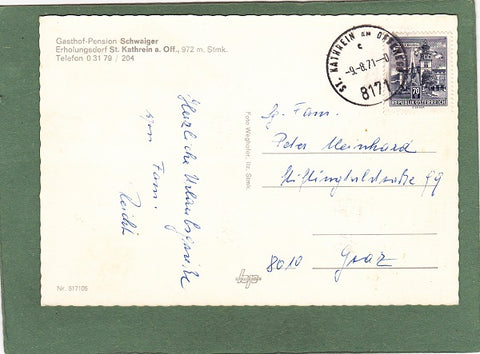 Gasthof-Pension Schwaiger
Erholungsdorf St. Kathrein a. Off., 972 m, Stmk.
Telefon 0 31 79 / 204
ST. KATHREIN AM
c
-9.-8.71-
8171
70
REPUBLIK ÖSTERREICH
Herzliche Urlaubsgrüße
von Fam.
Foto Weghofer, Ilz, Stmk.
Fam.
Peter Meinhard
99
8010 Graz
Nr. 817105